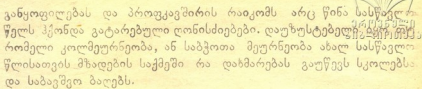 განყოფილებას და პროფკავშირის რაიკომს არც წინა სასწავლო
წელს ჰქონდა გატარებული ღონისძიებები. დაუზუსტებელია
რომელი კოლმეურნეობა, ან საბჭოთა მეურნეობა ახალ სასწავლო
წლისათვის მზადების საქმეში რა დახმარებას გაუწევს სკოლებსა
და საბავშვო ბაღებს.